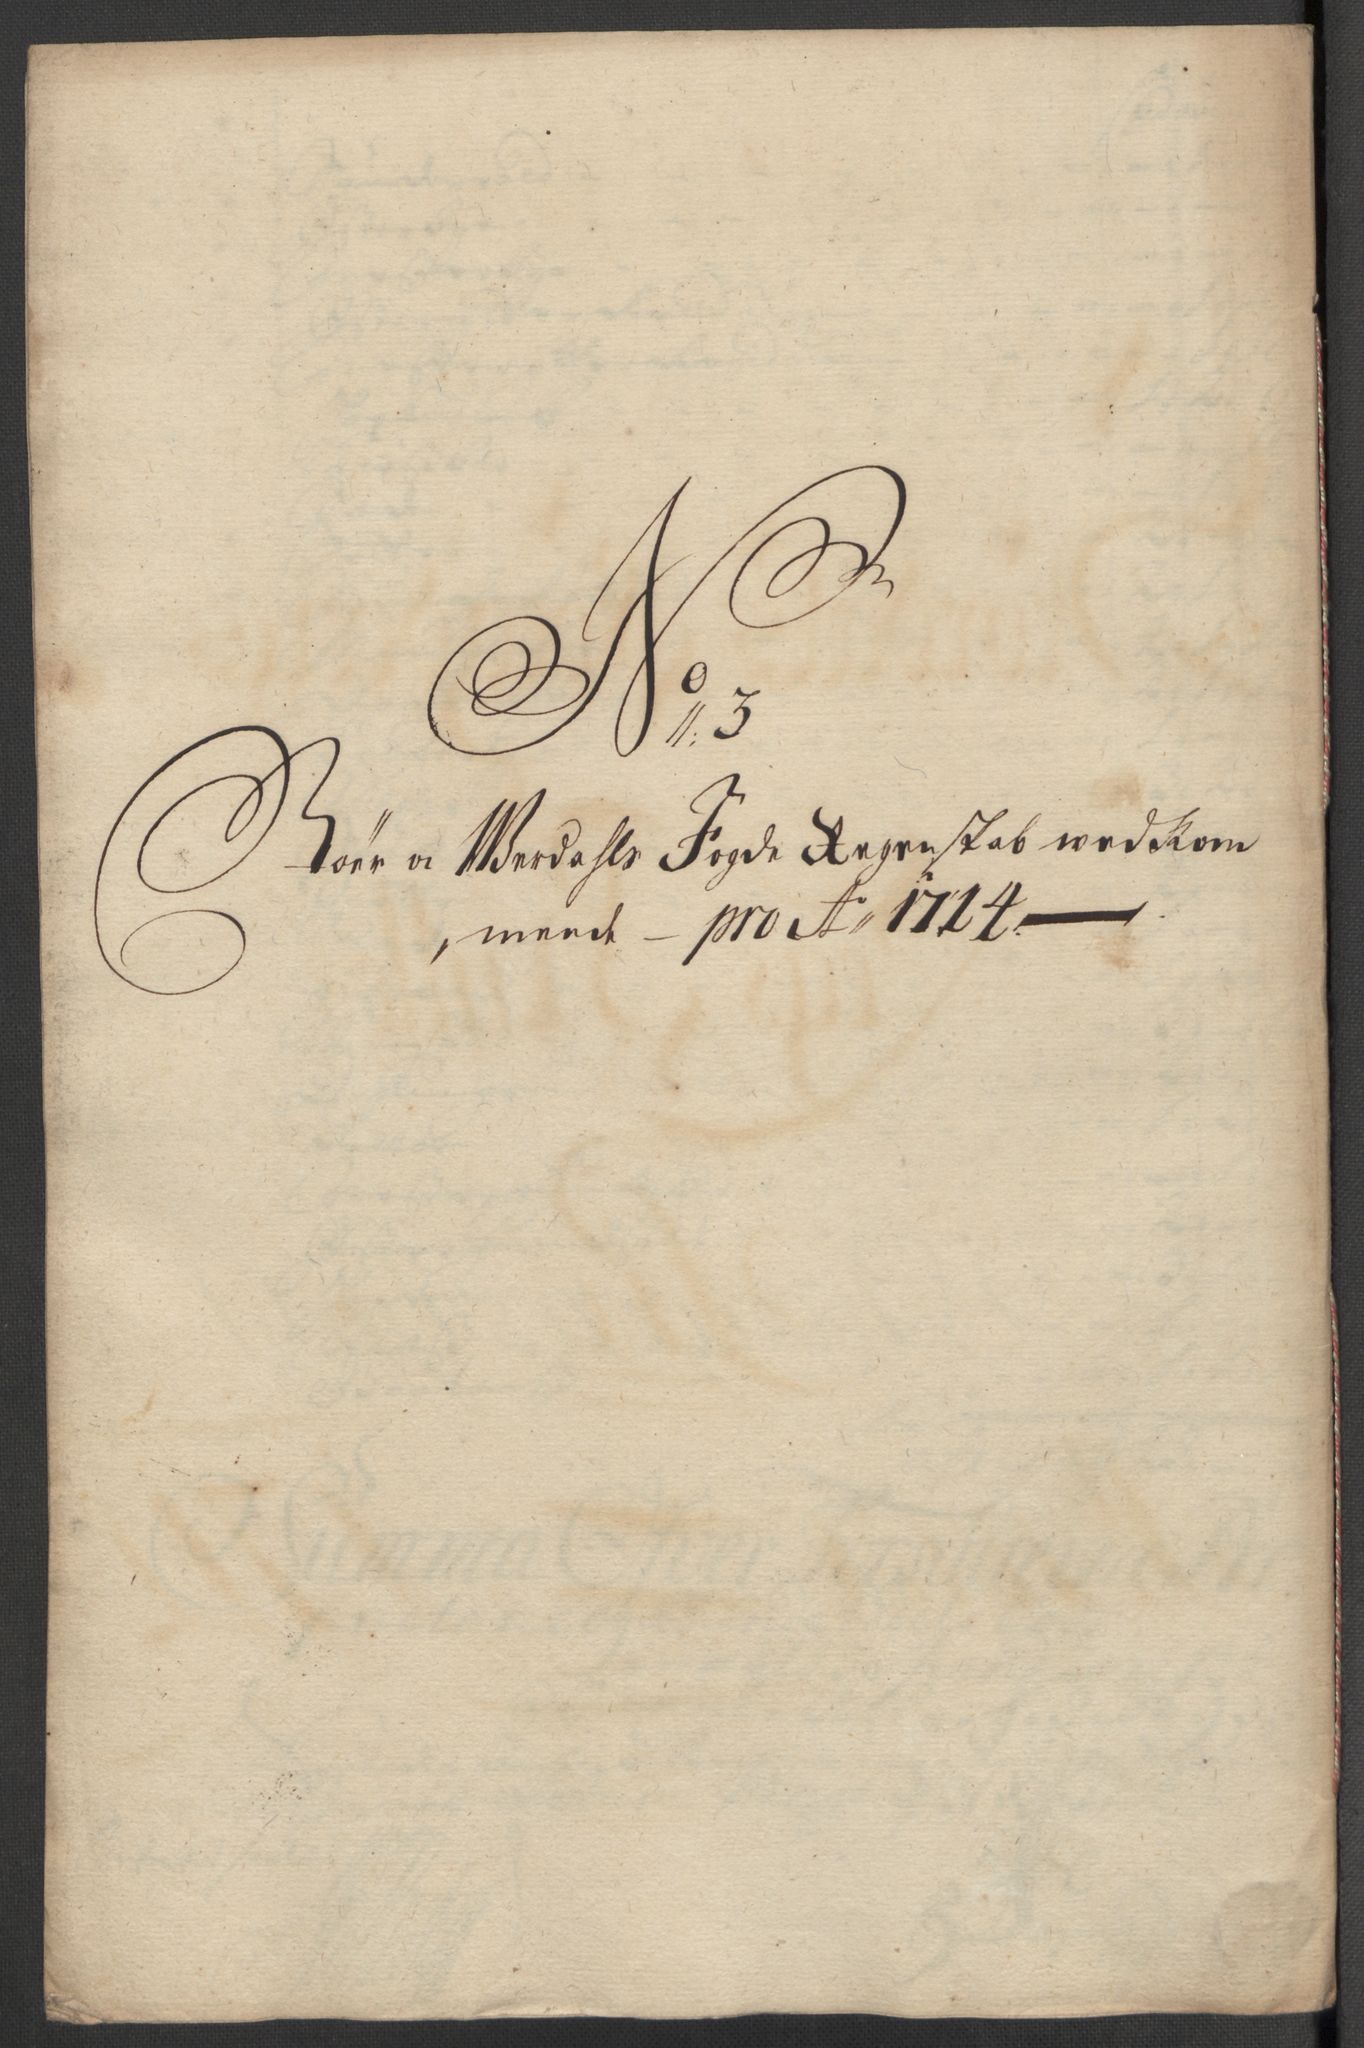 No
3
Stöer o Werdahls Fogde Regenskab wedkom
mende - pro Ao 1714